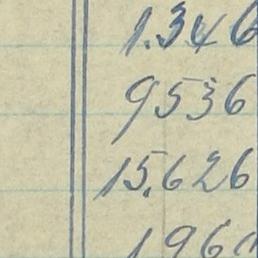 1.346
9536
15.626
196